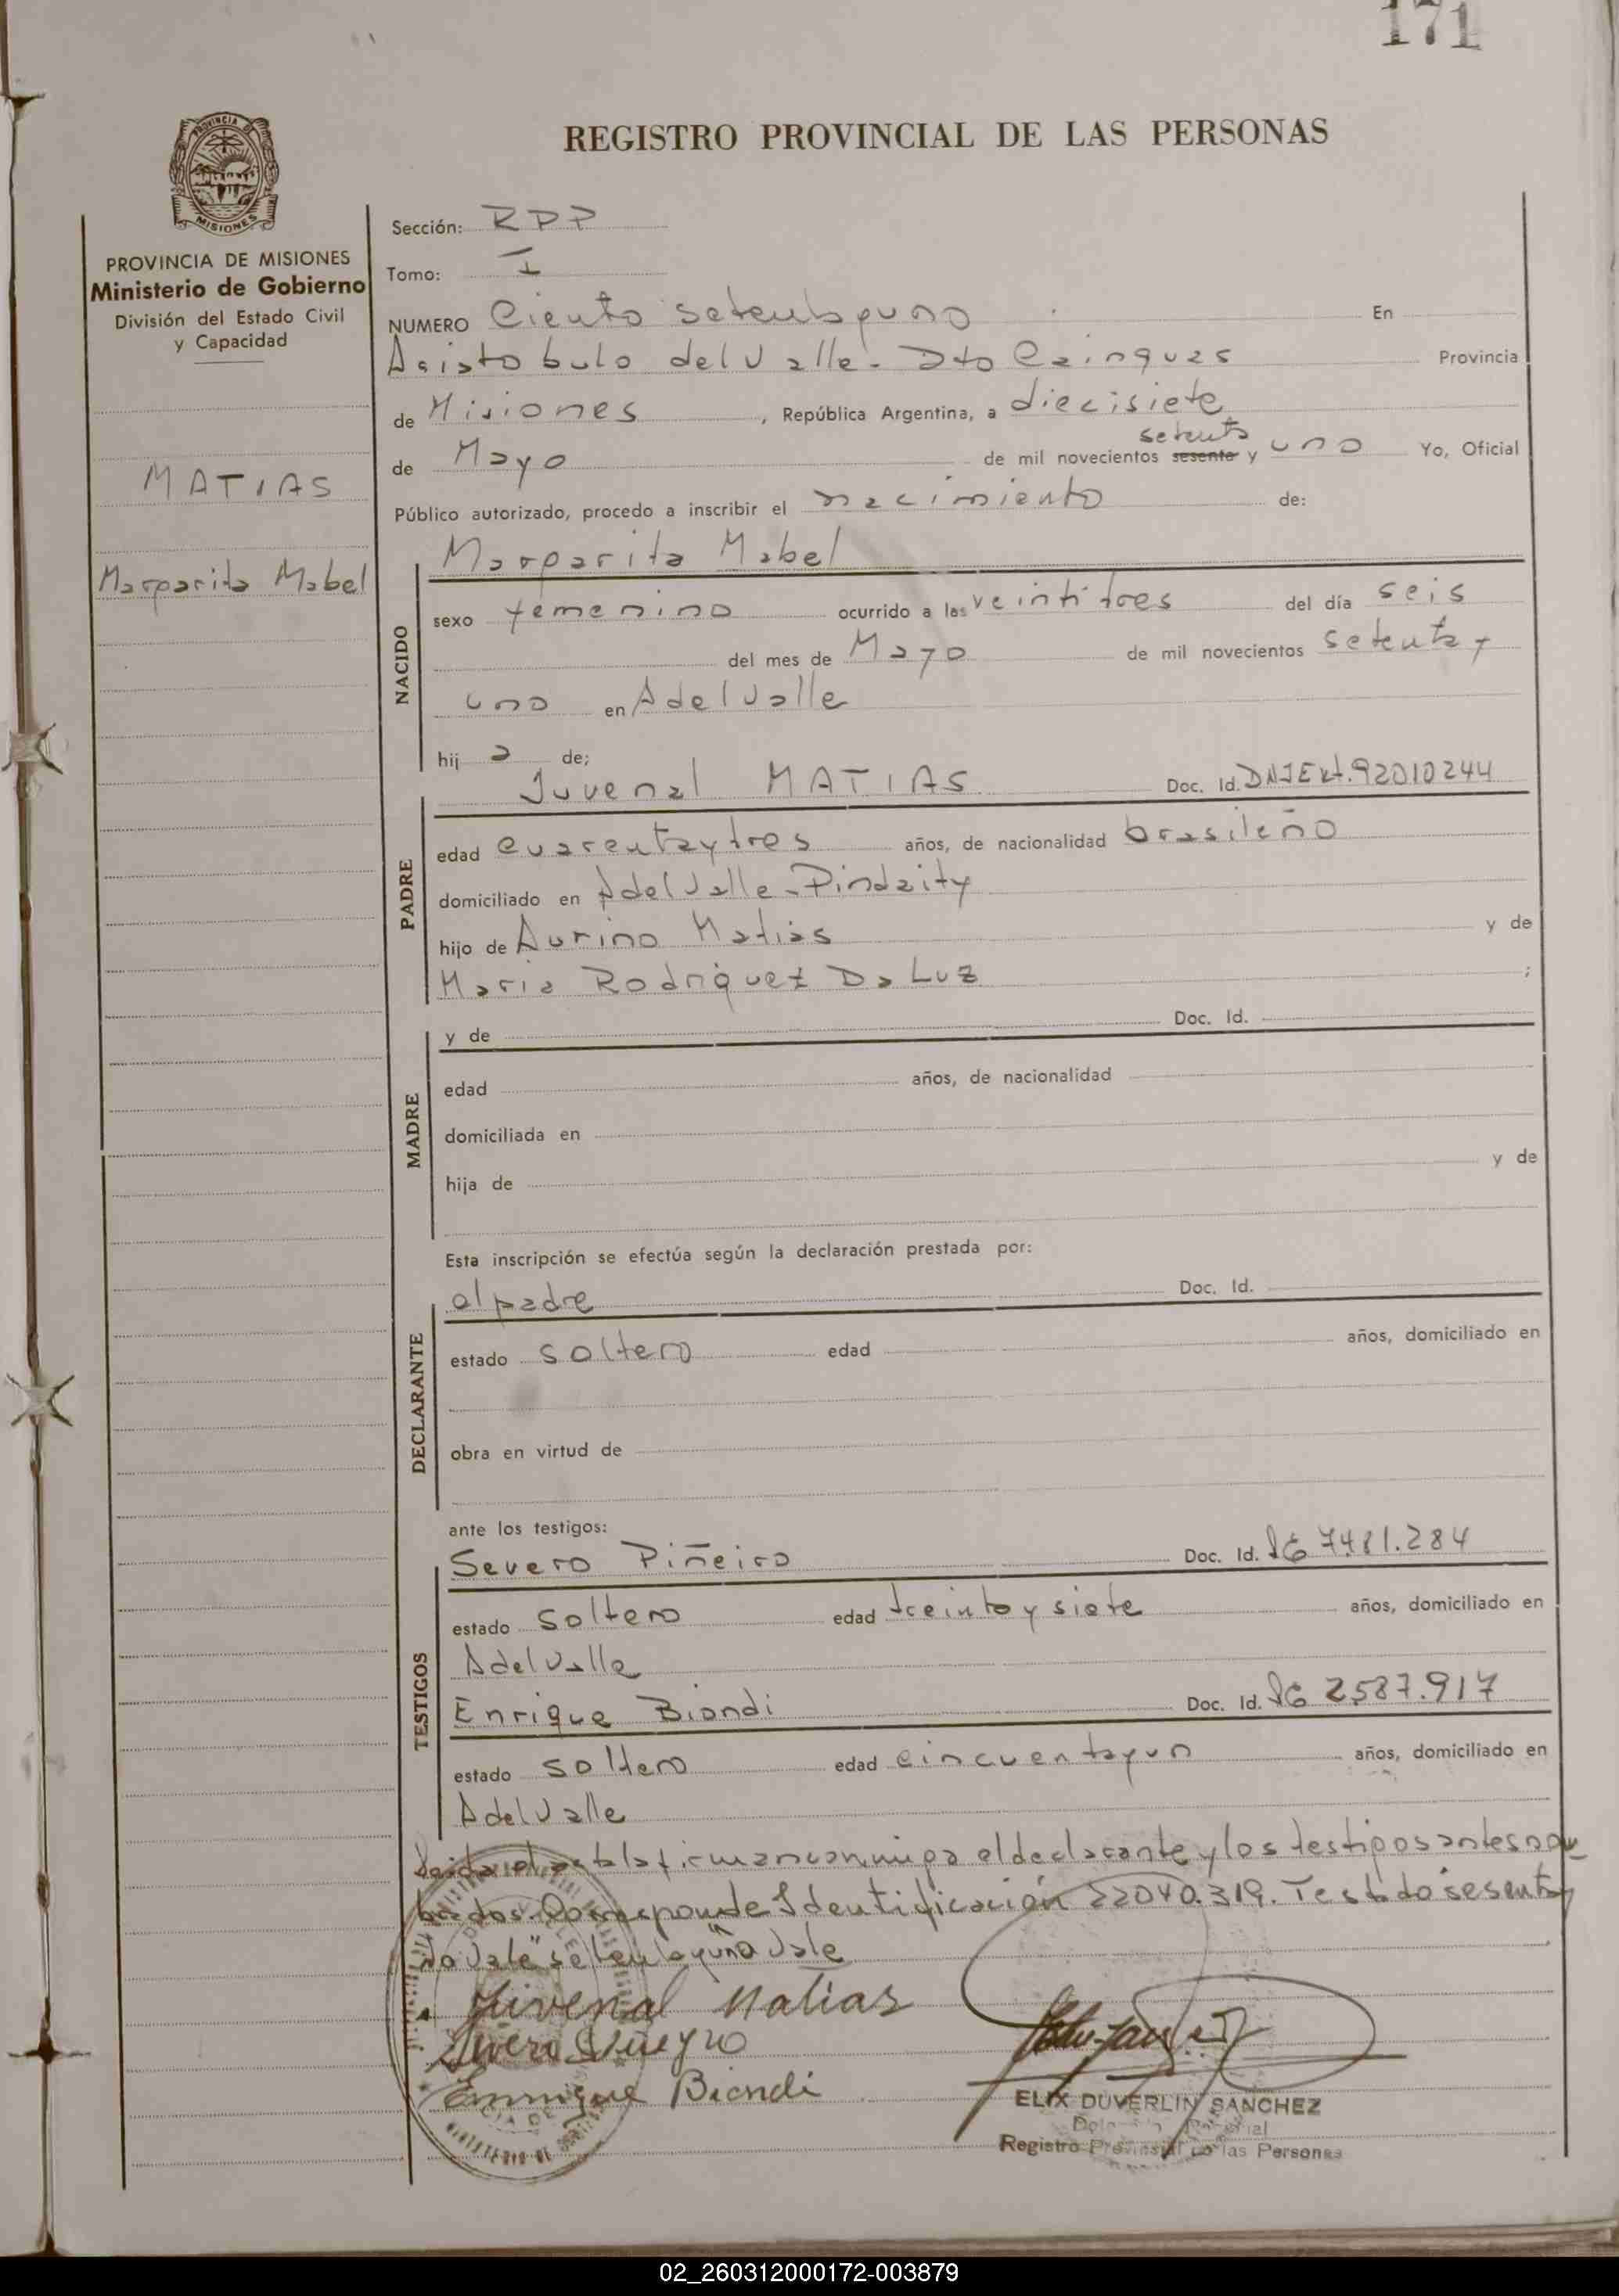 171
REGISTRO PROVINCIAL DE LAS PERSONAS
PROVINCIA DE MISIONES
PROVINCIA DE MISIONES
Ministerio de Gobierno
División del Estado Civil
y Capacidad
MATIAS
Margarita Mabel
Sección: RPP
Tomo: I
NUMERO Ciento setentayuno En
Aristobulo del Valle - Dto Cainguas Provincia
de Misiones, República Argentina, a diecisiete
setenta
de Mayo de mil novecientos sesenta y uno Yo, Oficial
Público autorizado, procedo a inscribir el nacimiento de:
NACIDO
Margarita Mabel
sexo femenino ocurrido a las veintitres del día seis
del mes de Mayo de mil novecientos setenta y
uno en AdelValle
hij a de;
PADRE
Juvenal MATIAS Doc. Id. DNIExt. 92010244
edad cuarentaytres años, de nacionalidad brasileño
domiciliado en AdelValle - Pindaity
hijo de Aurino Matias y de
Maria Rodriguez Da Luz ;
MADRE
y de Doc. Id.
edad años, de nacionalidad
domiciliada en
hija de y de
Esta inscripción se efectúa según la declaración prestada por:
DECLARANTE
el padre Doc. Id.
estado soltero edad años, domiciliado en
obra en virtud de
ante los testigos:
TESTIGOS
Severo Piñeiro Doc. Id. 7481.284
estado soltero edad treinta y siete años, domiciliado en
AdelValle
Enrique Biondi Doc. Id. 2587.917
estado soltero edad cincuentayun años, domiciliado en
AdelValle
Leida el acta la firman conmigo el declarante y los testigos antes nom
brados. Corresponde Identificación 22040.319. Testado sesenta y
No Vale" setenta y una Vale
Juvenal Matias
Enrique Biondi
ELIX DUVERLIN SANCHEZ
Registro Provincial de las Personas
02_260312000172-003879